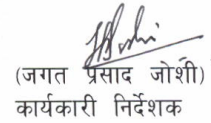 (जगत प्रसाद जोशी)
कार्यकारी निर्देशक